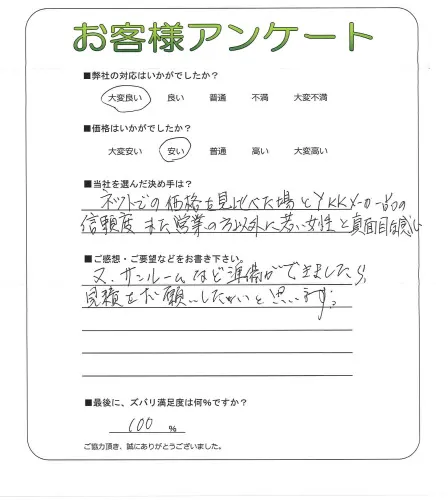 お客様アンケート
■弊社の対応はいかがでしたか？
大変良い 良い 普通 不満 大変不満
■価格はいかがでしたか？
大変安い 安い 普通 高い 大変高い
■当社を選んだ決め手は？
ネットでの価格を見比べた場とYKKメーカー品の
信頼度 また営業の方以外に若い女性と真面目な感じ
■ご感想・ご要望などをお書き下さい。
又、サンルームなど準備ができましたら、
見積をお願いしたいと思います。
■最後に、ズバリ満足度は何％ですか？
100 ％
ご協力頂き、誠にありがとうございました。